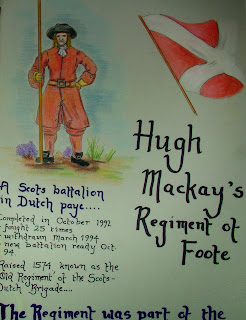 Hugh
Mackay's
Regiment of
Foote
A Scots battalion
in Dutch paye....
Completed in October 1992
fought 25 times
withdrawn March 1994
new battalion ready Oct.
94
Raised 1574 known as the
Old Regiment of the Scots-
Dutch Brigade....
The Regiment was part of the